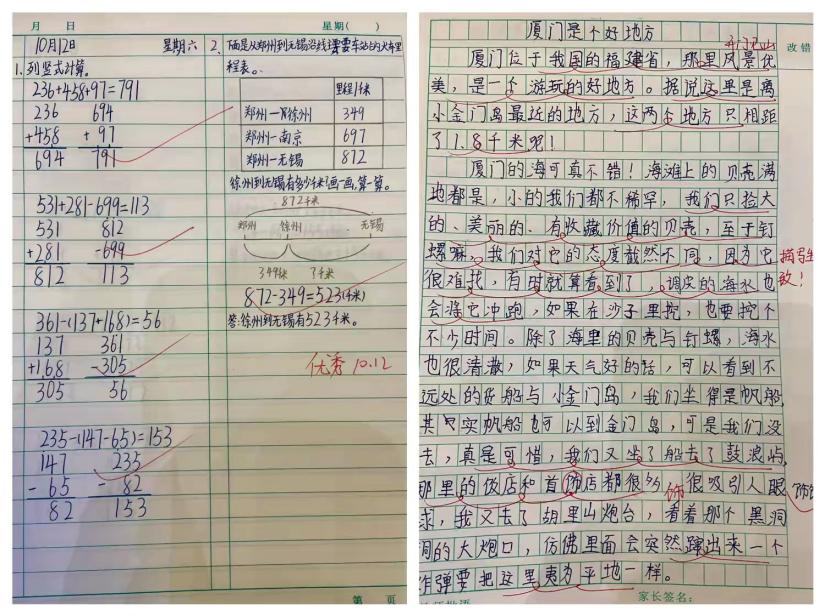 月 日 星期( )
10月12日 星期六
1.列竖式计算。
236+458+97=791
236 694
+458 + 97
694 791
531+281-699=113
531 812
+281 -699
812 113
361-(137+168)=56
137 361
+168 -305
305 56
235-(147-65)=153
147 235
- 65 - 82
82 153
2、下面是从郑州到无锡沿线火车里
程表。
里程/千米
郑州—徐州 349
郑州—南京 697
郑州—无锡 872
徐州到无锡有多少千米?画一画,算一算。
872千米
郑州 徐州 无锡
349千米 ?千米
872-349=523(千米)
答:徐州到无锡有523千米。
优秀 10.12
第 页
厦门是个好地方
开门见山
改错
厦门位于我国的福建省,那里风景优
美,是一个游玩的好地方。据说这里是离
小金门岛最近的地方,这两个地方只相距
了1.8千米呢!
厦门的海可真不错!海滩上的贝壳满
地都是,小的我们都不稀罕,我们只捡大
的、美丽的、有收藏价值的贝壳,至于钉
螺嘛,我们对它的态度截然不同,因为它
描写生
很难找,有时就算看到了,调皮的海水也
致!
会将它冲跑,如果在沙子里挖,也要挖个
不少时间。除了海里的贝壳与钉螺,海水
也很清澈,如果天气好的话,可以看到不
远处的货船与小金门岛,我们坐得是帆船,
其实帆船也可以到金门岛,可是我们没
去,真是可惜,我们又坐了船去了鼓浪屿,
那里的饭店和首饰店都很多 很吸引人眼
饰
球,我又去了胡里山炮台,看着那个黑洞
洞的大炮口,仿佛里面会突然蹿出来一个
炸弹要把这里夷为平地一样。
家长签名: